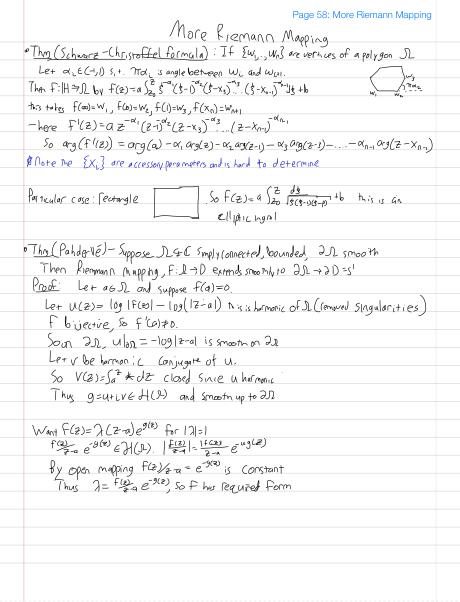 Page 58: More Riemann Mapping
More Riemann Mapping
Thm (Schwarz-Christoffel formula): If {w₁,..,wₙ} are vertices of a polygon Ω
Let αᵢ ∈ (-1,1) s.t. παᵢ is angle between wᵢ and wᵢ₊₁.
Then f: H→Ω by f(z)=a∫
this takes f(∞)=w₁, f(0)=w₂, f(1)=w₃, f(xₙ)=wₙ₊₁
-here f'(z)=a z^-α₁ (z-1)^-α₂ (z-x₃)^-α₃ ....(z-xₙ₋₁)^-αₙ₋₁
So arg(f'(z)) = arg(a) -α₁ arg(z) -α₂ arg(z-1) -α₃ arg(z-1) -.... -αₙ₋₁ arg(z-xₙ₋₁)
Note the {xᵢ} are accessory parameters and is hard to determine
w₃
w₁ wₙ
Particular case: rectangle So f(z)=a∫ +b this is an
elliptic
Thm - Suppose Ω⊊ℂ simply connected, bounded, ∂Ω smooth
Then Riemann mapping, f:Ω→D extends smoothly to ∂Ω→∂D=S¹
Proof: Let a∈Ω and suppose f(a)=0.
Let u(z) = log|f(z)| - log(|z-a|) this is harmonic of Ω (removed singularities)
f bijective, so f'(a)≠0.
So on ∂Ω, u|∂Ω = -log|z-a| is smooth on ∂Ω
Let v be harmonic conjugate of u.
So v(z)=∫ₐᶻ *dz closed since u harmonic
Thus g=u+iv ∈ H(Ω) and smooth up to ∂Ω.
Want f(z)=λ(z-a)e^g(z) for |λ|=1
f(z)/z-a e^-g(z) ∈ H(Ω). |f(z)/z-a| = |f(z)|/z-a e^-ug(z)
By open mapping f(z)/z-a = e^-g(z) is constant
Thus λ = f(z)/z-a e^-g(z), so f has required form